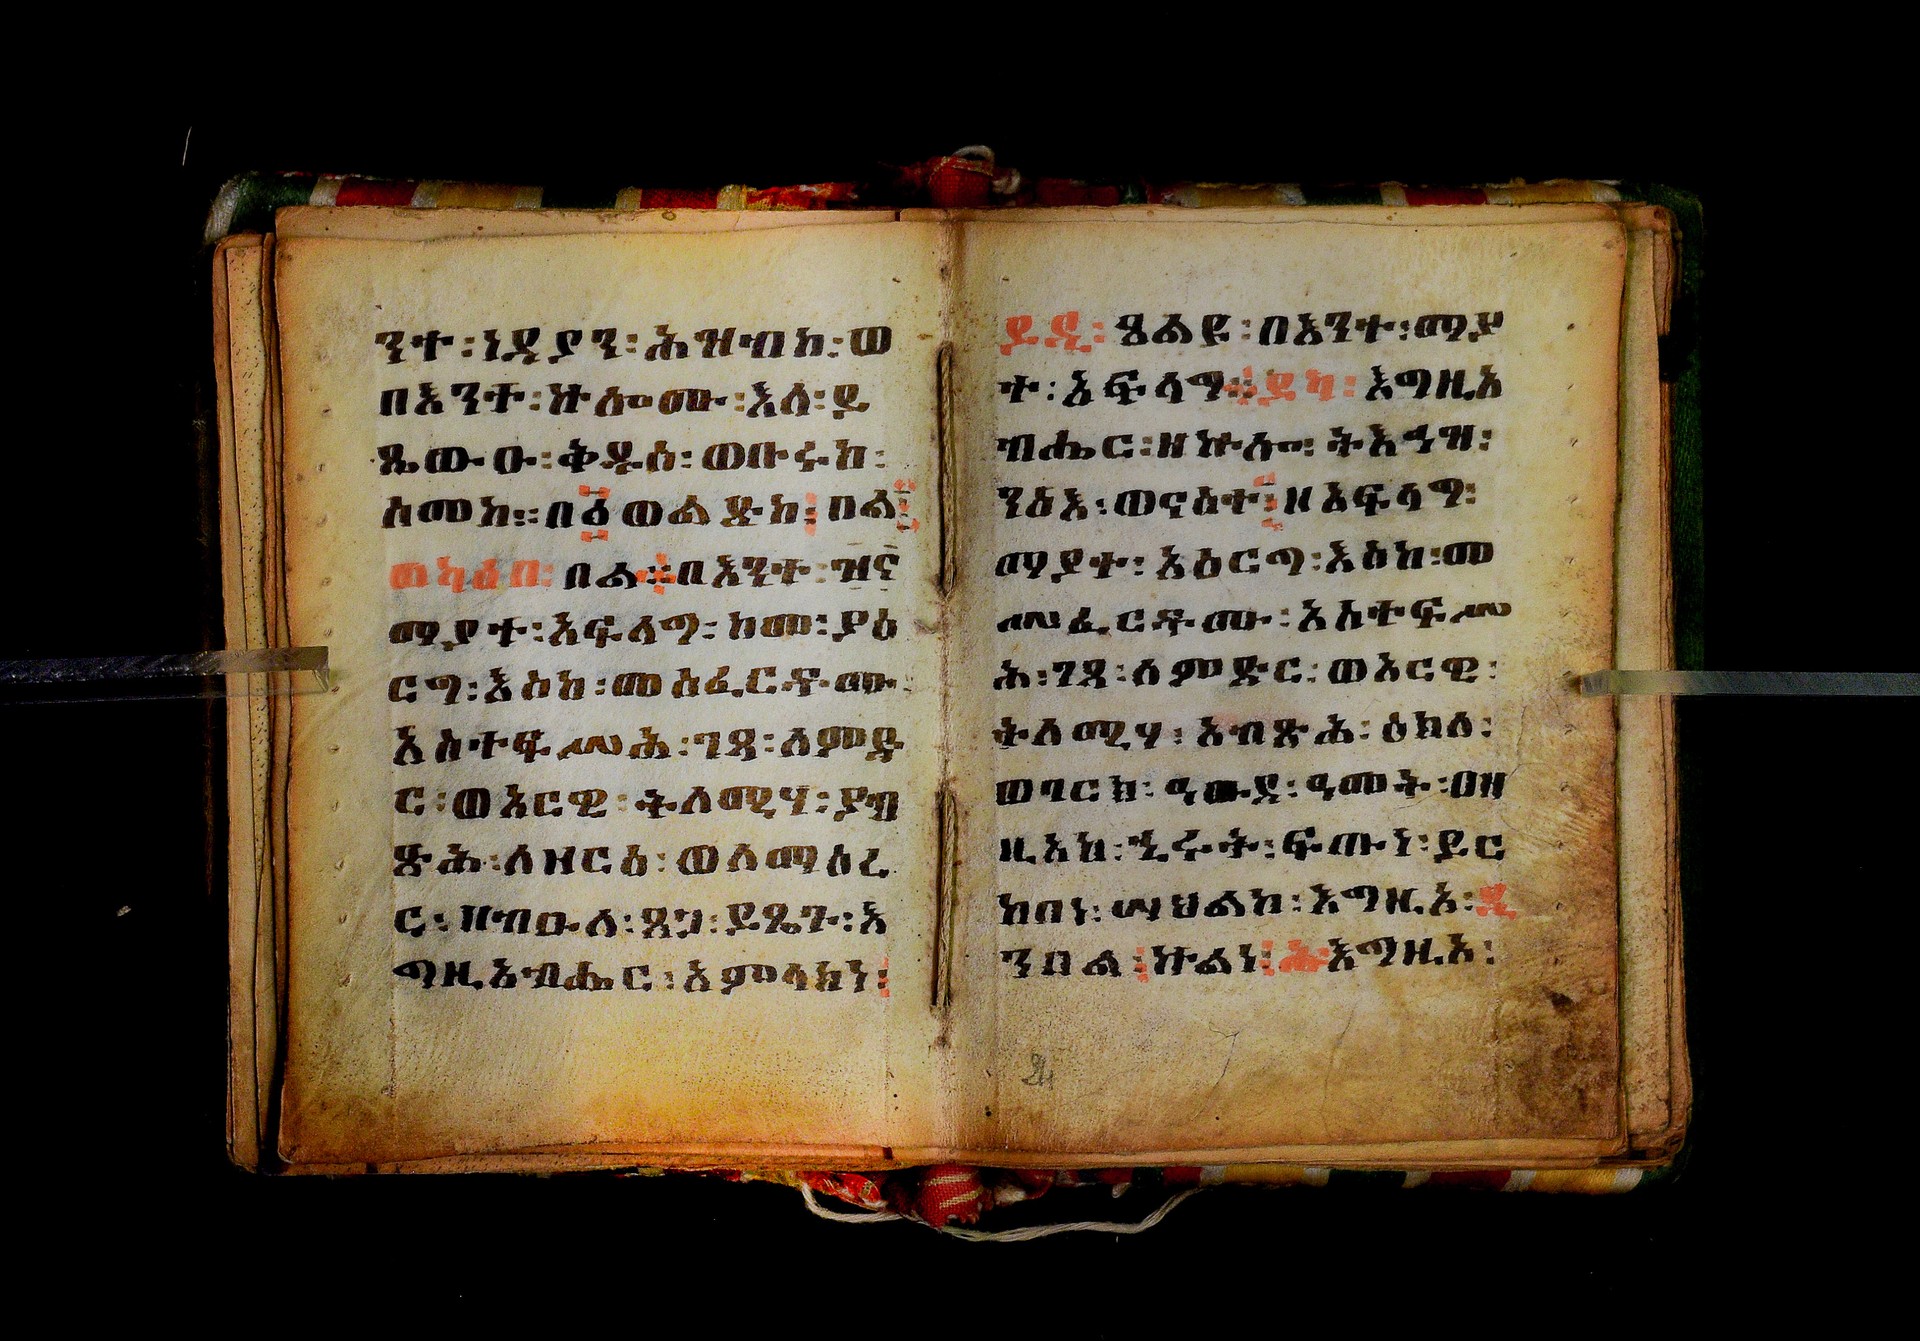 ንተ፡ነዳያን፡ሕዝብከ፡ወ
በእንተ፡ኵሎሙ፡እለ፡ይ
ጼውዑ፡ቅዱሰ፡ወቡሩከ፡
ስመከ፡፡በ፩ወልድከ፡በል፡
ወካዕበ፡በል፡፡በእንተ፡ዝና
ማያተ፡አፍላግ፡ከመ፡ያዕ
ርግ፡እስከ፡መስፈርቶሙ፡
አስተፍሥሕ፡ገጸ፡ለምድ
ር፡ወአርዊ፡ትለሚሃ፡ያብ
ጽሕ፡ለዘርዕ፡ወለማዕረ
ር፡ዘብዑለ፡ጸጋ፡ይጼጉ፡እ
ግዚአብሔር፡አምላክነ፡
ይዲ፡ጸልዩ፡በእንተ፡ማያ
ተ፡አፍላግ፡፡ይካ፡እግዚአ
ብሔር፡ዘኵሎ፡ትእኅዝ፡
ንስእ፡ወናስተ፡ዘአፍላግ፡
ማያተ፡አዕርግ፡እስከ፡መ
ሥፈርቶሙ፡አስተፍሥ
ሕ፡ገጸ፡ለምድር፡ወአርዊ፡
ትለሚሃ፡አብጽሕ፡ዕክለ፡
ወባርክ፡ዓውደ፡ዓመት፡በዘ
ዚአከ፡ኂሩት፡ፍጡነ፡ይር
ከበነ፡ሣህልከ፡እግዚአ፡ዲ
ንበል፡ኵልነ፡ሕ፡እግዚአ፡